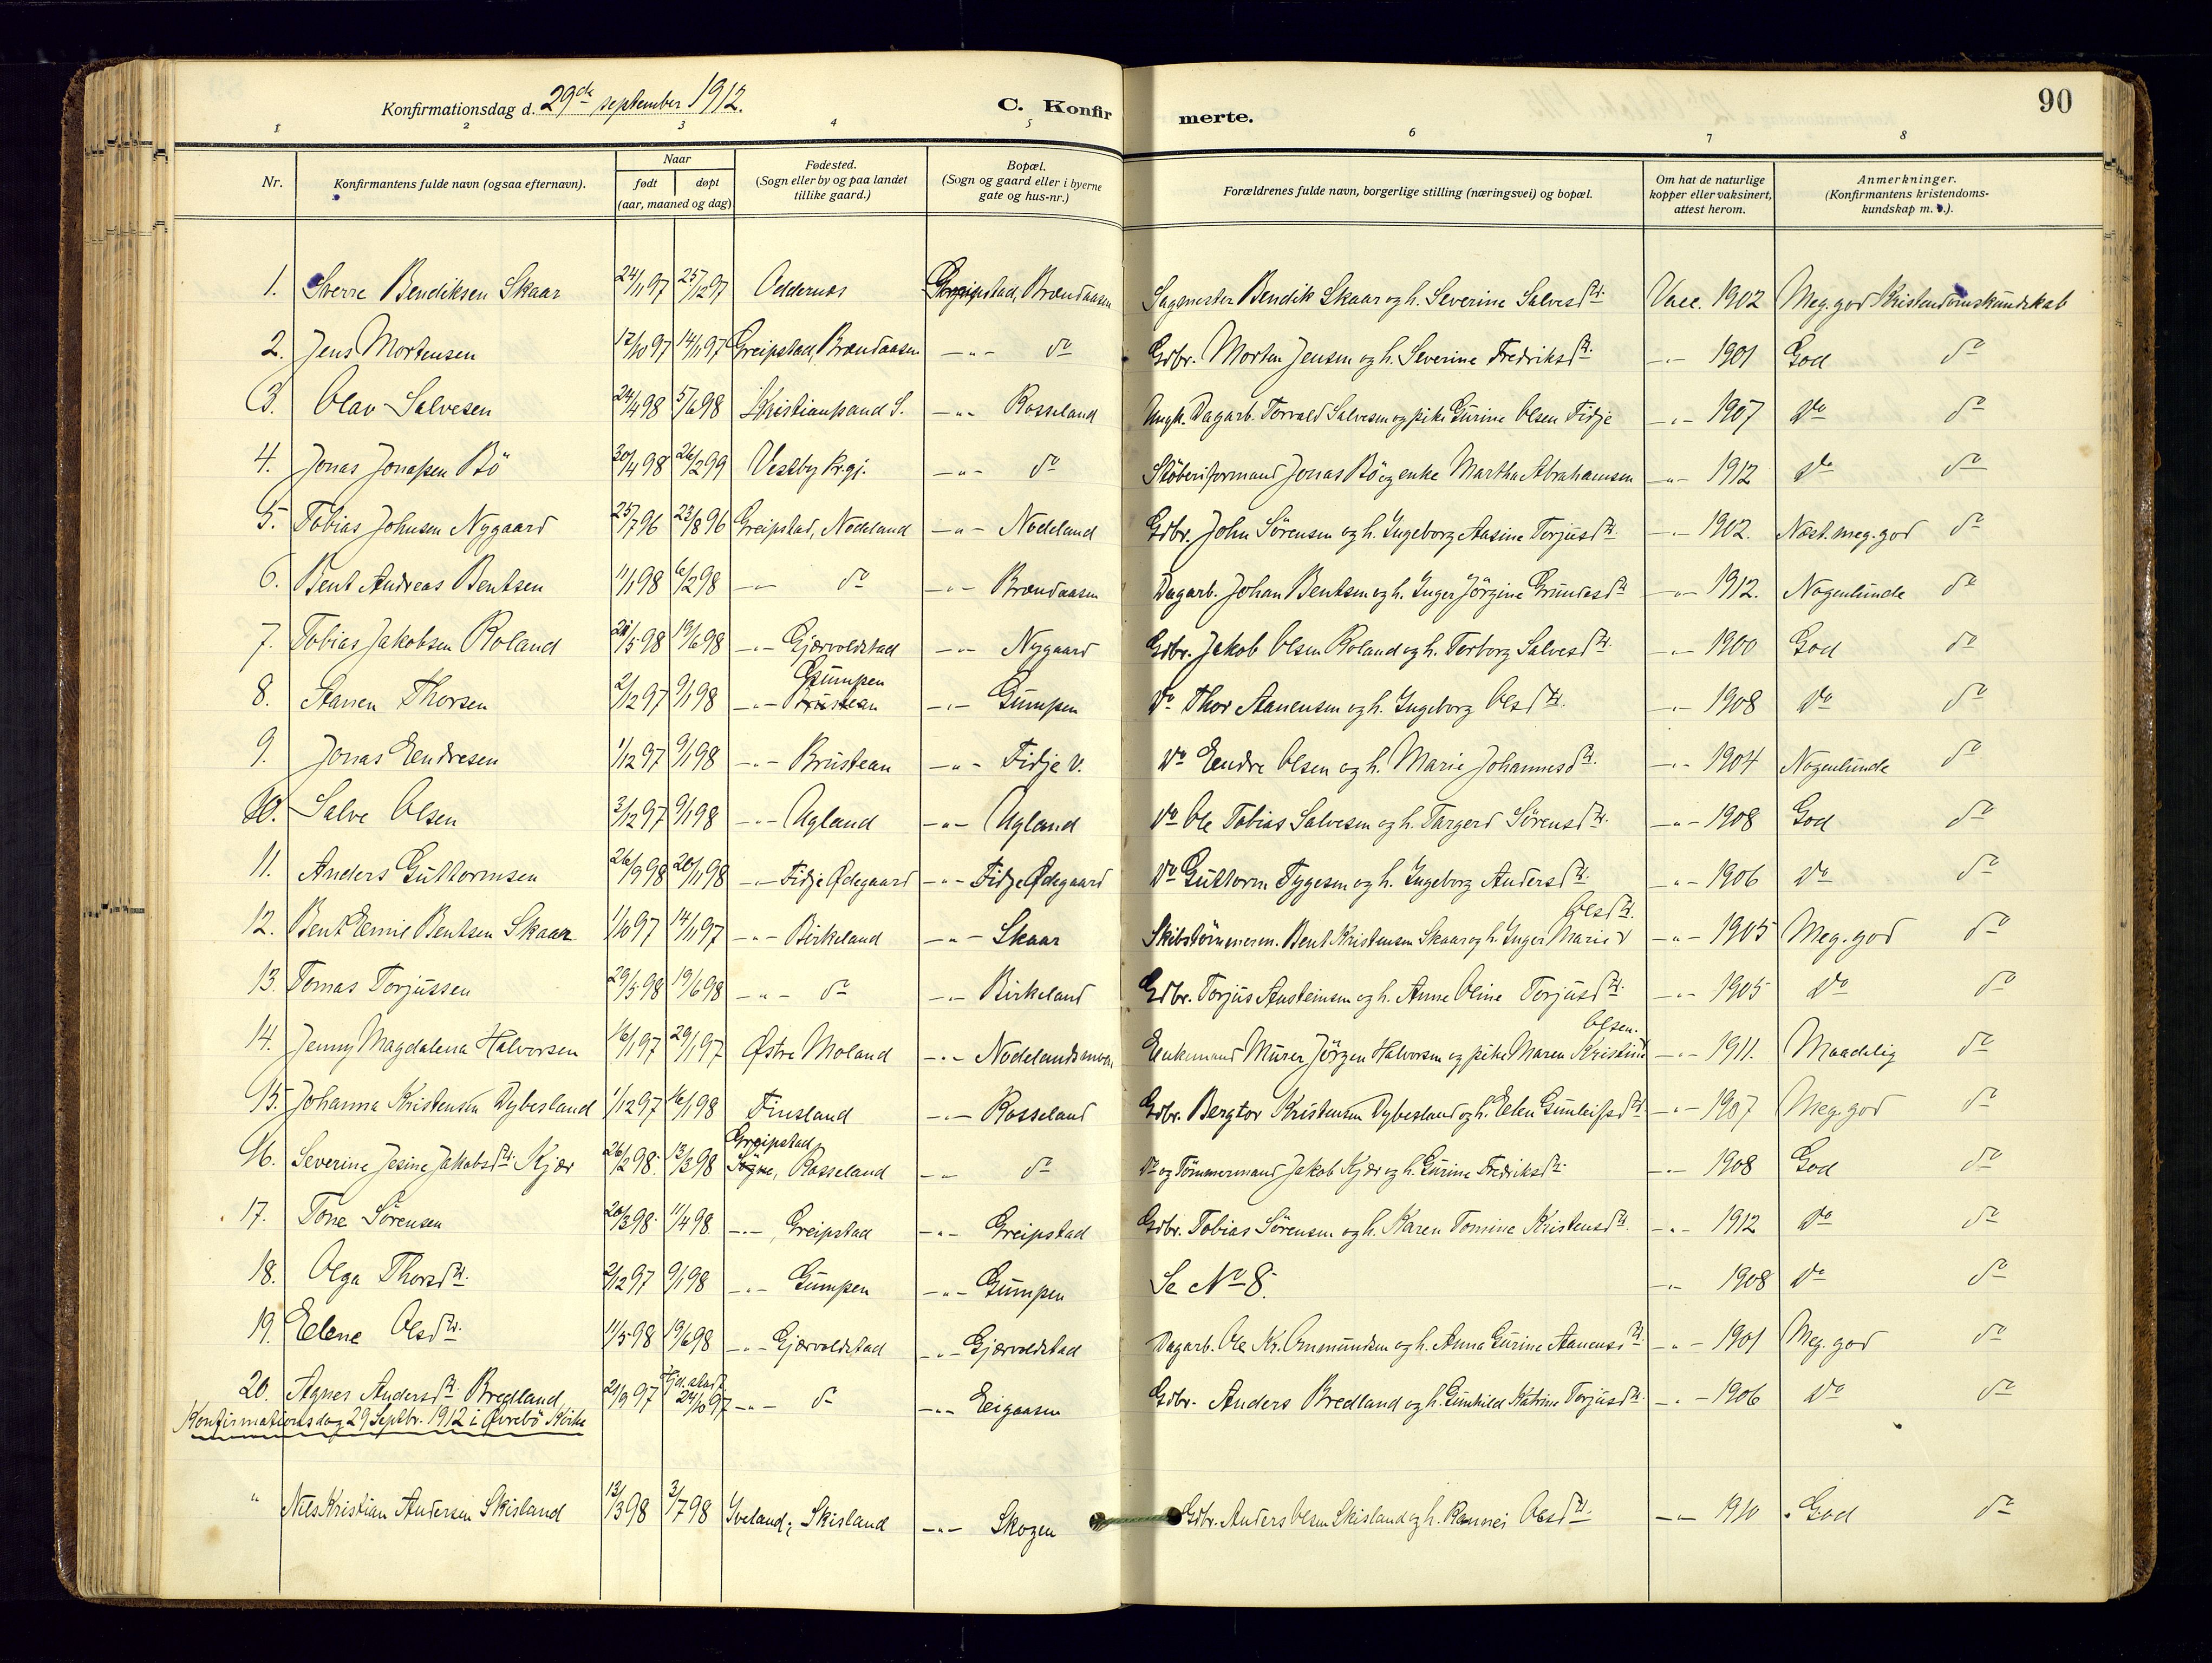 Konfirmationsdag d. 29de september 1912.
C. Konfirmerte.
90
1 2 3 4 5 6 7 8
Nr.
Konfirmantens fulde navn (ogsaa efternavn).
Naar
født døpt
(aar, maaned og dag)
Fødested.
(Sogn eller by og paa landet
tillike gaard.)
Bopæl.
(Sogn og gaard eller i byerne
gate og hus-nr.)
Forældrenes fulde navn, borgerlige stilling (næringsvei) og bopæl.
Om hat de naturlige
kopper eller vaksinert,
attest herom.
Anmerkninger.
(Konfirmantens kristendoms-
kundskap m. v.).
1. Sverre Bendiksen Skaar 24/11 97 25/12 97 Oddernes Greipstad, Brandaasen Sagmester Bendik Skaar og h. Severine Salvesdtr. Vacc. 1902 Meg. god Kristendomskundskab
2. Jens Mortensen 12/10 97 14/11 97 Greipstad, Brandaasen -"- do Gdbr. Morten Jensen og h. Severine Fredriksdtr. -"- 1901 God do
3. Olav Salvesen 24/4 98 5/6 98 Kristianssand S. -"- Rosseland Ungk. Dagarb. Torvald Salvesen og pike Gurine Olsen Fidje -"- 1907 do do
4. Jonas Jonassen Bö 30/4 98 26/2 99 Vestby Pr.gj. -"- do Stöberiformand Jonas Bö og enke Martha Abrahamsen -"- 1912 do do
5. Tobias Johnsen Nygaard 25/7 96 23/8 96 Greipstad, Nodeland -"- Nodeland Gdbr. John Sörensen og h. Ingeborg Aasine Torjusdtr. -"- 1902. Næst. meg. god do
6. Bent Andreas Bentsen 1/1 98 6/2 98 -"- do -"- Brandaasen Dagarb. Johan Bentsen og h. Inger Jörgine Gundesdtr. -"- 1912. Nogenlunde do
7. Tobias Jakobsen Roland 21/5 98 19/6 98 -"- Gjervoldstad -"- Nygaard Gdbr. Jakob Olsen Roland og h. Torborg Salvesdtr. -"- 1900 God do
Gumpen
8. Aanen Thorsen 2/12 97 9/1 98 -"- Brustean -"- Gumpen do Thor Aanensen og h. Ingeborg Olsdtr. -"- 1908 do do
9. Jonas Eendresen 1/12 97 9/1 98 -"- Brustean -"- Fidje v. do Eendre Olsen og h. Marie Johannesdtr. -"- 1904 Nogenlunde do
10. Salve Olsen 3/12 97 9/1 98 -"- Agland -"- Agland do Ole Tobias Salvesen og h. Targerd Sörensdtr. -"- 1908 God do
11. Anders Guttormsen 26/9 98 20/11 98 -"- Fidje Ødegaard -"- Fidje Ødegaard do Guttorm Tygesen og h. Ingeborg Andersdtr. -"- 1906 do do
Olsdtr.
12. Bent Eemil Bentsen Skaar 1/10 97 14/11 97 -"- Birkeland -"- Skaar Skibstömmerm. Bent Kristensen Skaar og h. Inger Marie -"- 1905 Meg. god do
13. Tomas Torjussen 29/5 98 19/6 98 -"- do -"- Birkeland Gdbr. Torjus Austeinsen og h. Anne Oline Torjusdtr. -"- 1905 do do
Olsen.
14. Jenny Magdalena Halvorsen 16/1 97 29/1 97 Østre Moland -"- Nodelandsmoen Enkemand Murer Jörgen Halvorsen og pike Maren Kristine -"- 1911. Maadelig do
15. Johanna Kristensen Dybesland 1/12 97 16/1 98 Finsland -"- Rosseland Gdbr. Bergtor Kristensen Dybesland og h. Eelen Gunleifsdtr. -"- 1907 Meg. god do
Greipstad,
16. Severine Jesine Jakobsdtr. Kjær 26/2 98. 13/3 98 Søgne, Rosseland -"- do do og Tömmermand Jakob Kjær og h. Gurine Fredriksdtr. -"- 1908 God do
17. Tone Sörensen 20/3 98. 11/4 98. -"- Greipstad -"- Greipstad Gdbr. Tobias Sörensen og h. Karen Tomine Kristensdtr. -"- 1912 do do
18. Olga Thorsdtr. 2/12 97 9/1 98 -"- Gumpen -"- Gumpen Se No 8. -"- 1908 do do
19. Eelene Olsdtr. 11/5 98 19/6 98 -"- Gjervoldstad -"- Gjervoldstad Dagarb. Ole Kr. Omundsen og h. Anna Gurine Aanensdtr. -"- 1901 Meg. god do
20. Agnes Andersdtr. Bredland 21/9 97 24/10 97 -"- do -"- Eigaasen Gdbr. Anders Bredland og h. Gunhild Katrine Torjusdtr. -"- 1906 do do
Konfirmationsdag 29 Septbr. 1912 i Øvrebö Kirke
" Nils Kristian Andersen Skisland 13/3 98 3/7 98 Iveland, Skisland -"- Skogen Gdbr. Anders Olsen Skisland og h. Rannei Olsdtr. -"- 1910 God do